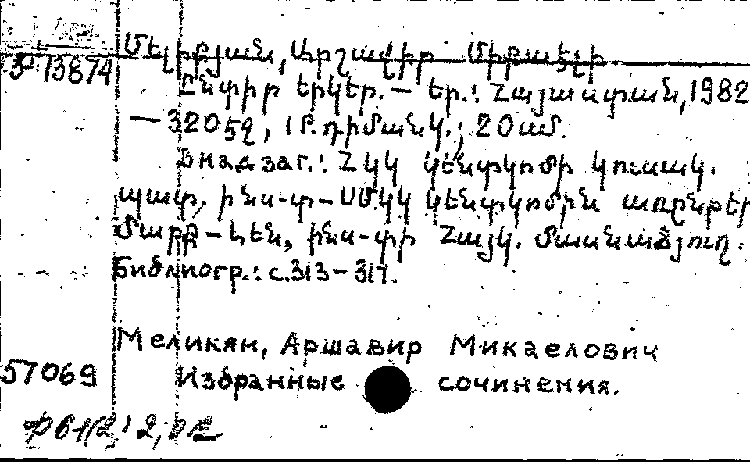 Մելիքյան, Արշավիր Միքաելի
Э¹ 13874
Ընտիր երկեր. — Եր.: Հայաստան, 1982
— 320 էջ, 1 թ. դիմանկ.; 20 սմ.
В надзаг.: ՀԿԿ Կենտկոմի կուսակ.
պատ. ինս-տ — ՍՄԿԿ Կենտկոմին առընթեր
Մարքս — Լեն. ինս-տի Հայկ. մասնաճյուղ.
Библиогр.: с. 313 — 317.
Меликян, Аршавир Микаелович
57069
Избранные сочинения.